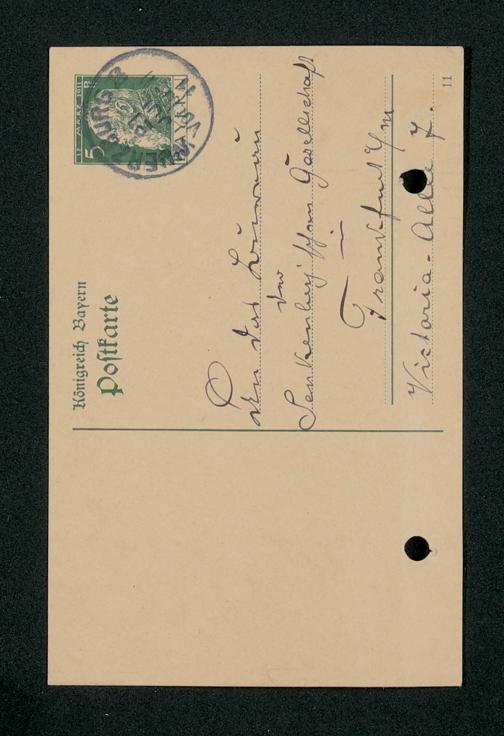 Königreich Bayern
Postkarte
5
BAYERN
WUERZBURG 2
11
An das Bureau
der
Senckenbergischen Gesellschaft
Frankfurt a/m
Victoria-Allee 7.